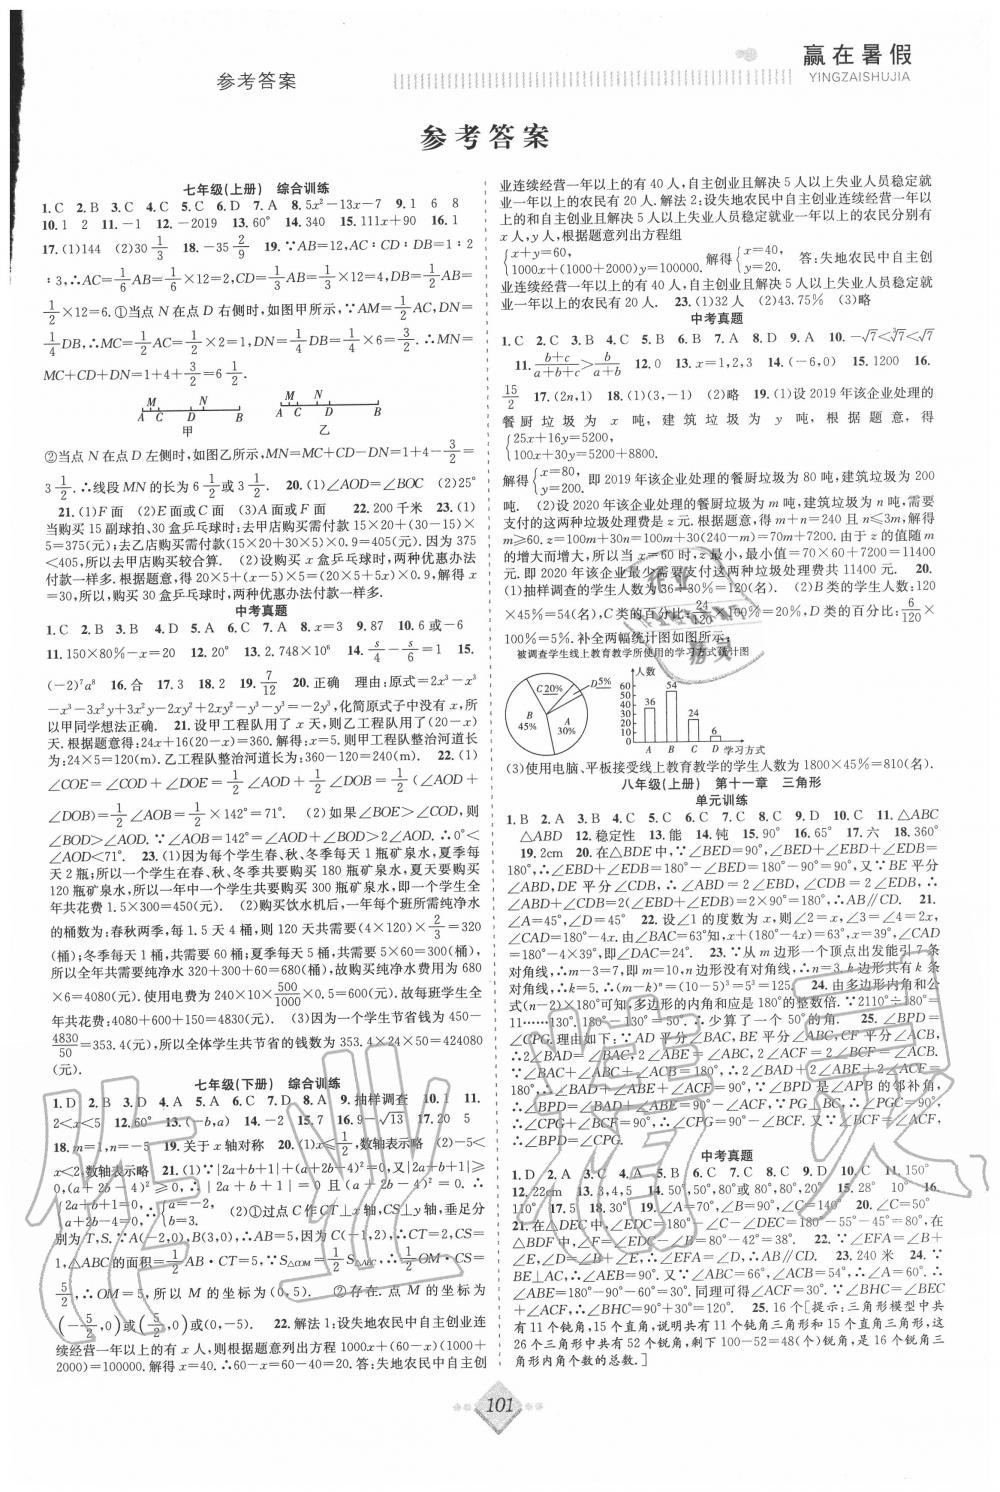 参考答案
赢在暑假
YINGZAISHUJIA
参考答案
七年级(上册) 综合训练
1.C 2.B 3.C 4.C 5.C 6.D 7.A 8.5x²-13x-7 9.1 6 8
10.1 2 11.-1 12.-2019 13.60° 14.340 15.111x+90 16.1
17.(1)144 (2)30 1/3 18.-35 2/9 19.∵AB=12,AC∶CD∶DB=1∶2
∶3,∴AC=1/6AB=1/6×12=2,CD=1/3AB=1/3×12=4,DB=1/2AB=
1/2×12=6.①当点N在点D右侧时,如图甲所示,∵AM=1/2AC,DN=
1/4DB,∴MC=1/2AC=1/2×2=1,DN=1/4DB=1/4×6=3/2.∴MN=
MC+CD+DN=1+4+3/2=6 1/2.
M N
A C D B
甲
M N
A C D B
乙
②当点N在点D左侧时,如图乙所示,MN=MC+CD-DN=1+4-3/2=
3 1/2.∴线段MN的长为6 1/2或3 1/2. 20.(1)∠AOD=∠BOC (2)25°
21.(1)F面 (2)E面或C面 (3)A面或F面 22.200千米 23.(1)
当购买15副球拍、30盒乒乓球时:去甲店购买需付款15×20+(30-15)×
5=375(元);去乙店购买需付款(15×20+30×5)×0.9=405(元).因为375
<405,所以去甲店购买较合算. (2)设购买x盒乒乓球时,两种优惠办法
付款一样多.根据题意,得20×5+(x-5)×5=(20×5+5x)×0.9,解得x
=30.所以,购买30盒乒乓球时,两种优惠办法付款一样多.
中考真题
1.C 2.B 3.B 4.D 5.A 6.C 7.A 8.x=3 9.87 10.6或-6
11.150×80%-x=20 12.20° 13.2.748×10⁶ 14.s/4-s/6=1 15.
(-2)⁷a⁸ 16.合 17.3 18.2 19.7/12 20.正确 理由:原式=2x³-x³
-x³-3x²y+3x²y-2xy²+2xy²-y³-y³=-2y³,化简原式子中没有x,所
以甲同学想法正确. 21.设甲工程队用了x天,则乙工程队用了(20-x)
天.根据题意得:24x+16(20-x)=360.解得:x=5.则甲工程队整治河道长
为:24×5=120(m).乙工程队整治河道长为:360-120=240(m). 22.(1)
∠COE=∠COD+∠DOE=1/2∠AOD+1/2∠DOB=1/2(∠AOD+
∠DOB)=1/2∠AOB=1/2×142°=71°. (2)如果∠BOE>∠COD,则
∠BOD>∠AOD.∵∠AOB=142°=∠AOD+∠BOD>∠AOD.∴0°<
∠AOD<71°. 23.(1)因为每个学生春、秋、冬季每天1瓶矿泉水,夏季每
天2瓶;所以一个学生在春、秋、冬季共要购买180瓶矿泉水,夏天要购买
120瓶矿泉水,所以一年中一个学生共要购买300瓶矿泉水,即一个学生全
年共花费1.5×300=450(元). (2)购买饮水机后,一年每个班所需纯净水
的桶数为:春秋两季,每1.5天4桶,则120天共需要(4×120)×2/3=320
(桶);冬季每天1桶,共需要60桶;夏季每天5桶,共需要5×60=300(桶)
所以全年共需要纯净水320+300+60=680(桶),故购买纯净水费用为680
×6=4080(元).使用电费为240×10×500/1000×0.5=600(元).故每班学生全
年共花费:4080+600+150=4830(元). (3)因为一个学生节省钱为450-
4830/50=353.4(元),所以全体学生共节省的钱数为353.4×24×50=424080
(元).
七年级(下册) 综合训练
1.D 2.B 3.B 4.A 5.A 6.C 7.B 8.A 9.抽样调查 10.1 11.
2<x<5 12.60° 13.(-b,a) 14.-2 15.7 16.9-√13 17.20 5
18.m=1,n=-5 19.关于x轴对称 20.(1)x<1/2,数轴表示略 (2)-5<
x<2,数轴表示略 21.(1)∵|2a+b+1|+(a+2b-4)²=0,又|2a+b+1|≥
0,(a+2b-4)²≥0,∴|2a+b+1|=0且(a+2b-4)²=0.∴
{2a+b+1=0, a+2b-4=0.∴{a=-2, b=3. (2)①过点C作CT⊥x轴,CS⊥y轴,垂足分
别为T,S.∵A(-2,0),B(3,0),∴AB=5,因为C(-1,2),∴CT=2,CS=
1,△ABC的面积=1/2AB·CT=5,∵S△COM=1/2S△ABC,∴1/2OM·CS=
5/2,∴OM=5,所以M的坐标为(0,5). ②存在.点M的坐标为
(-5/2,0)或(5/2,0)或(0,-5). 22.解法1:设失地农民中自主创业连
续经营一年以上的有x人,则根据题意列出方程1000x+(60-x)(1000
+2000)=100000.解得x=40.∴60-x=60-40=20.答:失地农民中自主创
业连续经营一年以上的有40人,自主创业且解决5人以上失业人员稳定就
业一年以上的农民有20人.解法2:设失地农民中自主创业连续经营一年以
上的和自主创业且解决5人以上失业人员稳定就业一年以上的农民分别有
x人,y人,根据题意列出方程组
{x+y=60, 1000x+(1000+2000)y=100000. 解得{x=40, y=20. 答:失地农民中自主创
业连续经营一年以上的有40人,自主创业且解决5人以上失业人员稳定就
业一年以上的农民有20人. 23.(1)32人 (2)43.75% (3)略
中考真题
1.C 2.C 3.B 4.C 5.B 6.B 7.A 8.D 9.A 10.-√7<∛7<√7
11.b+c/a+b+c>b/a+b 12.0 13.x=1,2,3 14.(-6,0) 15.1200 16.
15/2 17.(2n,1) 18.(1)(3,-1) (2)略 19.(1)设2019年该企业处理的
餐厨垃圾为x吨,建筑垃圾为y吨,根据题意,得
{25x+16y=5200, 100x+30y=5200+8800.
解得{x=80, y=200. 即2019年该企业处理的餐厨垃圾为80吨,建筑垃圾为200
吨. (2)设2020年该企业处理的餐厨垃圾为m吨,建筑垃圾为n吨,需要
支付的这两种垃圾处理费是z元.根据题意,得m+n=240且n≤3m,解得
m≥60.z=100m+30n=100m+30(240-m)=70m+7200.由于z的值随m
的增大而增大,所以当x=60时,z最小,最小值=70×60+7200=11400
元.即2020年该企业最少需要支付这两种垃圾处理费共11400元. 20.
(1)抽样调查的学生人数为36÷30%=120(名). (2)B类的学生人数:120
×45%=54(名),C类的百分比:24/120×100%=20%,D类的百分比:6/120×
100%=5%.补全两幅统计图如图所示:
被调查学生线上教育教学所使用的学习方式统计图
C20% D5% B 45% A 30%
人数
60 50 40 30 20 10 0
36 54 24 6
A B C D 学习方式
(3)使用电脑、平板接受线上教育教学的学生人数为1800×45%=810(名).
八年级(上册) 第十一章 三角形
单元训练
1.B 2.A 3.B 4.C 5.C 6.C 7.C 8.B 9.D 10.C 11.△ABC
△ABD 12.稳定性 13.能 14.钝 15.90° 16.65° 17.六 18.360°
19.2cm 20.在△BDE中,∵∠BED=90°,∠BED+∠EBD+∠EDB=
180°,∴∠EBD+∠EDB=180°-∠BED=180°-90°=90°.又∵BE平分
∠ABD,DE平分∠CDB,∴∠ABD=2∠EBD,∠CDB=2∠EDB,∴
∠ABD+∠CDB=2(∠EBD+∠EDB)=2×90°=180°,∴AB∥CD. 21.
∠A=45°,∠D=45° 22.设∠1的度数为x,则∠2=x,∠3=∠4=2x,
∠CAD=180°-4x.由∠BAC=63°知,x+(180°-4x)=63°,x=39°,∠CAD
=180°-4×39°,即∠DAC=24°. 23.∵从m边形一个顶点出发能引7条
对角线,∴m-3=7,即m=10.n边形没有对角线,∴n=3.k边形共有k条
对角线,∴k=5.∴(m-k)ⁿ=(10-5)³=5³=125. 24.由多边形内角和公
式(n-2)×180°可知,多边形的内角和应是180°的整数倍.∵2110°÷180°=
11……130°.180°-130°=50°.∴少算了一个50°的角. 25.∠BPD=
∠CPG.理由如下:∵AD平分∠BAC,BE平分∠ABC,CF平分∠ACB,
∴∠BAC=2∠BAD,2∠ABE=∠ABC,2∠ACF=2∠BCF=∠ACB.
∵∠BAC+∠ABC+∠ACB=180°,∴2∠BAD+2∠ABE+2∠ACF=
180°,∴∠BAD+∠ABE+∠ACF=90°,∵∠BPD是△APB的邻补角,
∴∠BPD=∠BAD+∠ABE=90°-∠ACF,∵PG⊥BC,∴∠PGC=90°,
∴∠CPG+∠BCF=90°,∴∠CPG=90°-∠BCF.又∵∠ACF=∠BCF,
∴∠BPD=∠CPG.
中考真题
1.D 2.A 3.C 4.D 5.B 6.D 7.C 8.D 9.A 10.C 11.150°
12.22cm 13.3,4,5 14.50°,50°,80°或50°,80°,20° 15.28° 10° 16.
110° 17.5 18.30° 19.(1)略 (2)AD 20.∠A=90°,∠C=50°
21.在△DEC中,∠EDC=180°-∠C-∠DEC=180°-55°-45°=80°,在
△BDF中,∠F=∠EDC-∠B=80°-42°=38°. 22.∵∠EFA=∠B+
∠E,∠D=∠B+∠E,∴∠EFA=∠D,∴AB∥CD. 23.240米 24.∵
BE⊥AC,∴∠AEB=90°.又∵∠ABC=66°,∠ACB=54°,∴∠A=60°.∴
∠ABE=180°-90°-60°=30°.同理可得∠ACF=30°.∴∠BHC=∠BEC
+∠ACF,∴∠BHC=90°+30°=120°. 25.16个[提示:三角形模型中共
有11个钝角,15个直角,说明共有11个钝角三角形和15个直角三角形,这
26个三角形中共有52个锐角,剩下100-52=48(个)锐角,是16个锐角三
角形内角个数的总数.]
101
作业精灵